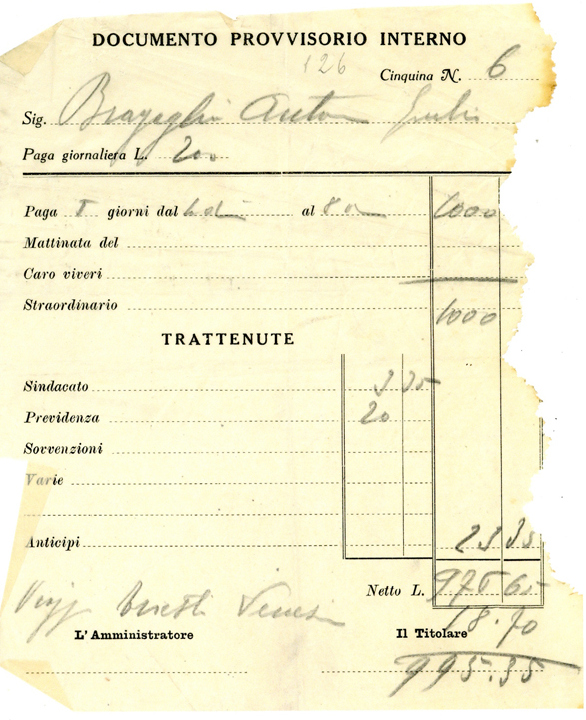 DOCUMENTO PROVVISORIO INTERNO
126
Cinquina N. 6
Sig. Bragaglia Anton Giulio
Paga giornaliera L. 200
Paga 5 giorni dal al 8 1000
Mattinata del
Caro viveri
Straordinario 1000
TRATTENUTE
Sindacato 3 35
Previdenza 20
Sovvenzioni
Varie
Anticipi 23 35
Netto L. 976 65
18.70
L'Amministratore Il Titolare
995.35